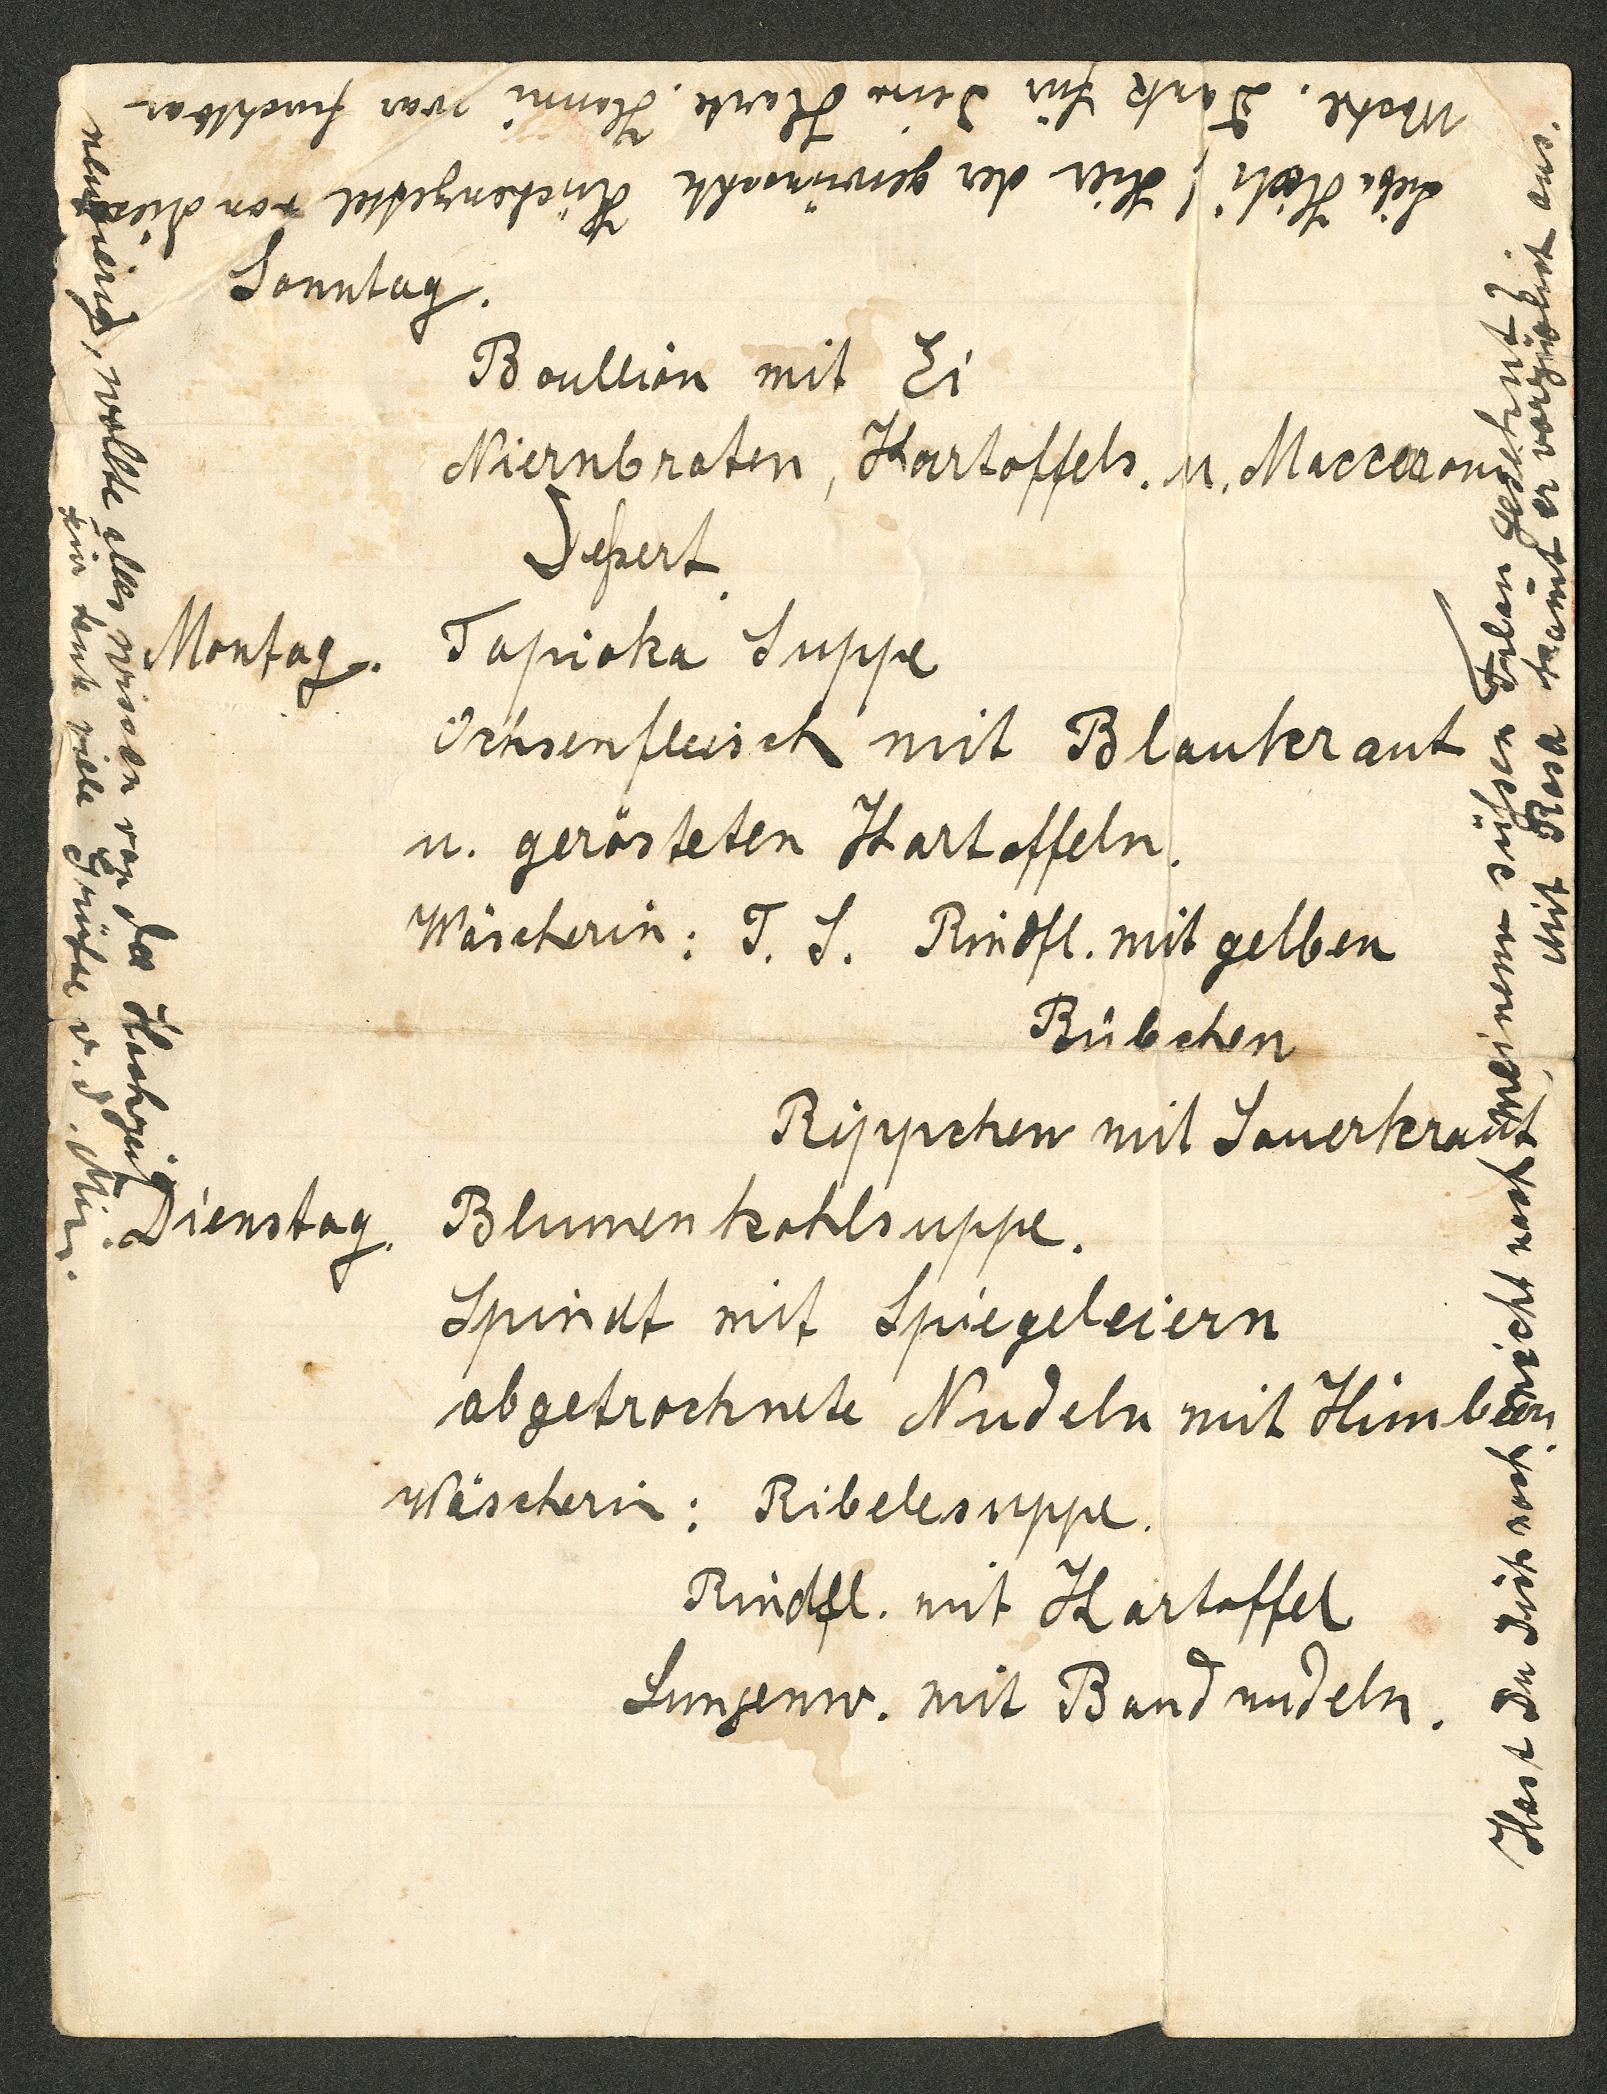 Liebe Hedi! Hier der gewünschte Küchenzettel von dieser
Woche. Dank für Deine Karte. Hanni war furchtbar
neugierig, wollte alles wissen von der Hochzeit.
für heute viele Grüße v. d.
Sonntag.
Boullion mit Ei
Niernbraten, Kartoffels. u. Maccaroni
Deßert
Montag. Tapioka Suppe
Ochsenfleisch mit Blaukraut
u. gerösteten Kartoffeln.
Wäscherin: T. S. Rindfl. mit gelben
Rübchen
Rippchen mit Sauerkraut
Dienstag. Blumenkohlsuppe.
Spinat mit Spiegeleiern
abgetrocknete Nudeln mit Himbeern
Wäscherin: Ribelesuppe.
Rindfl. mit Kartoffel
Lungenw. mit Bandnudeln.
Hast Du Dich noch nicht nach meinem süßen gesehnt?
Mit Rosa kommt er vorzüglich aus.